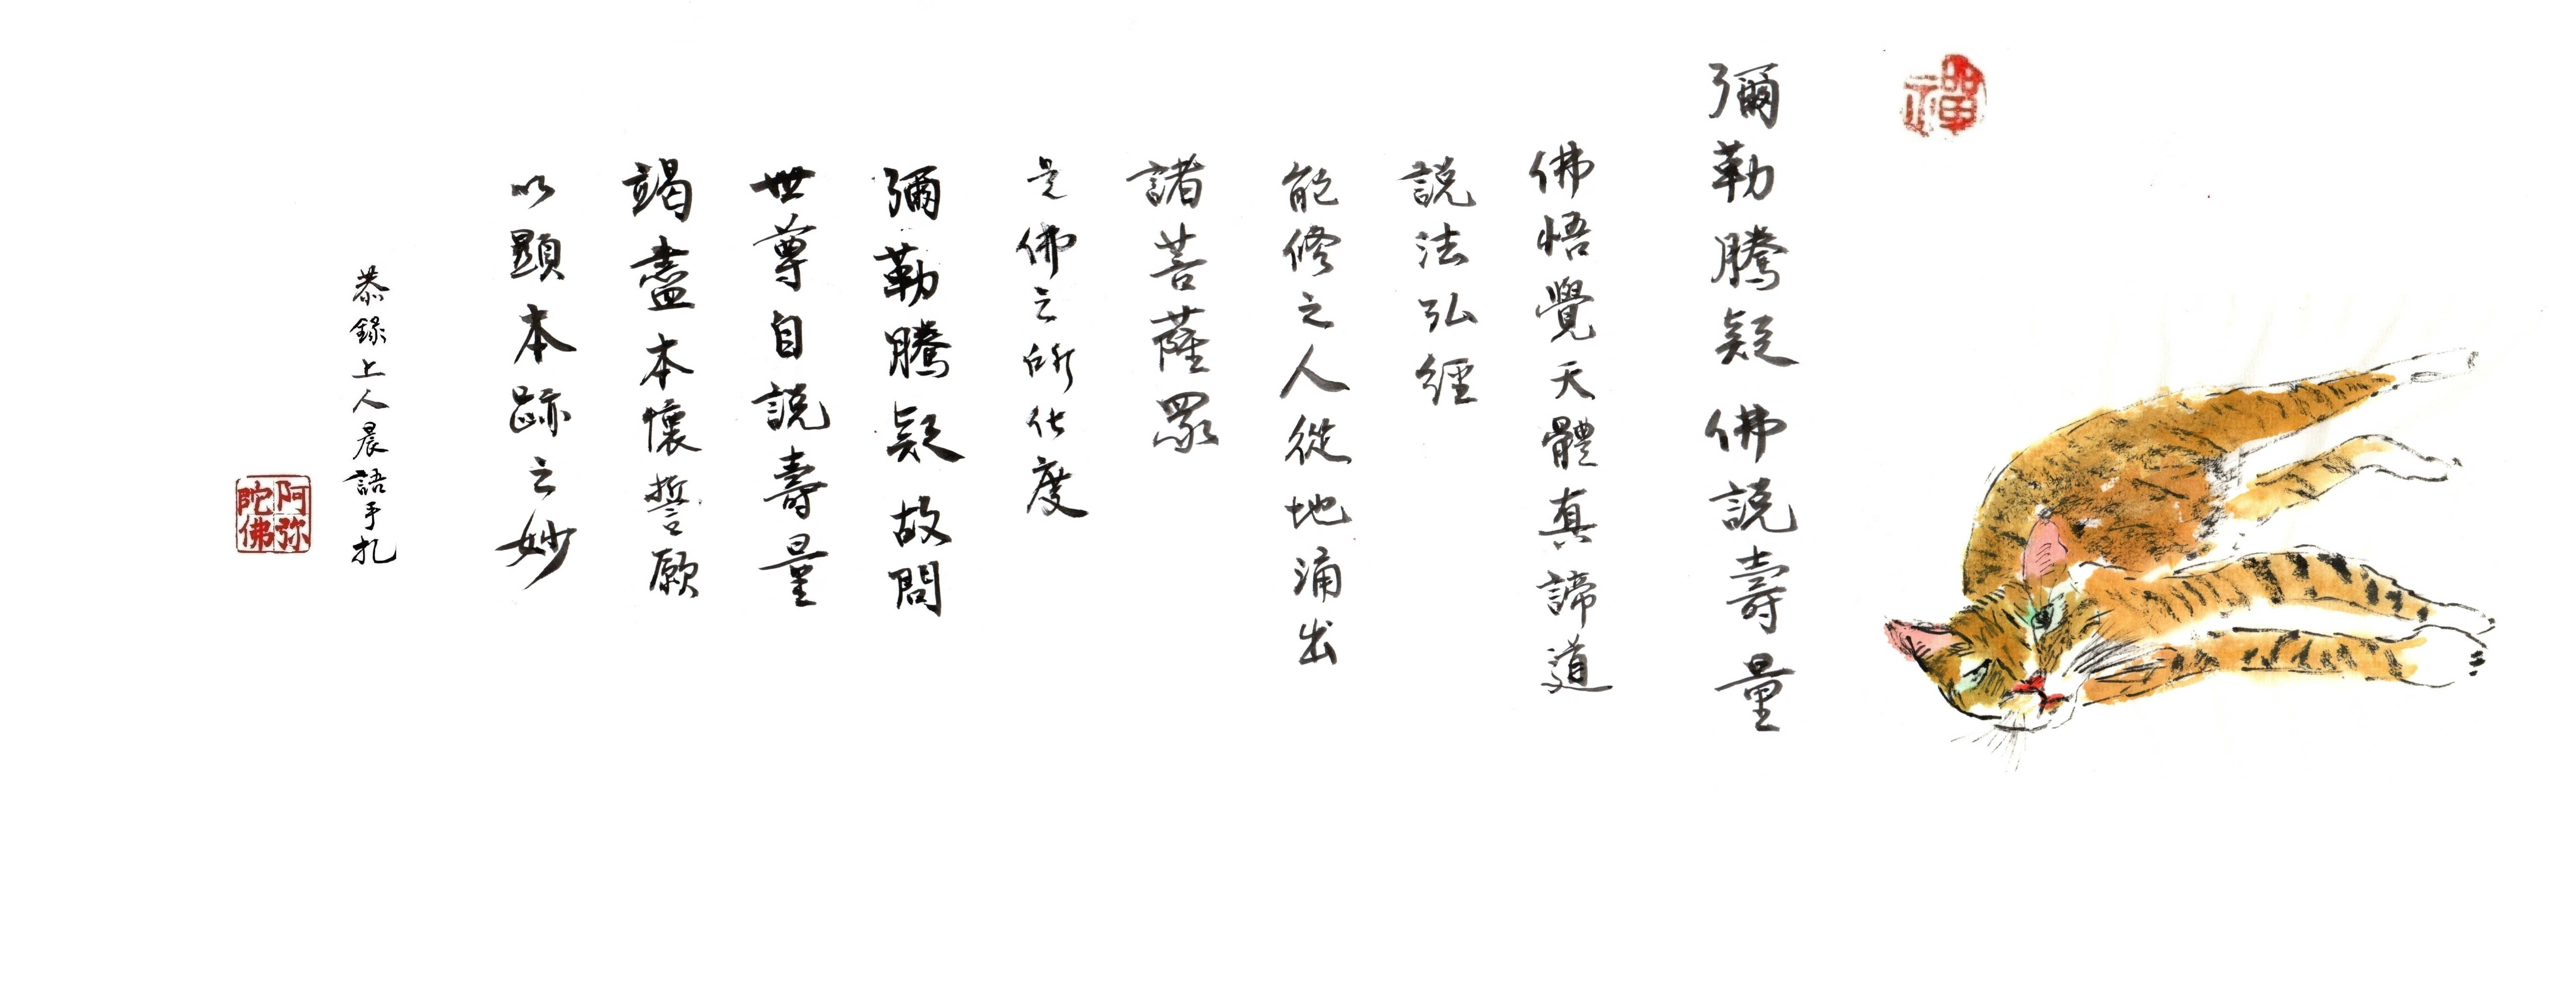 禪
彌勒騰疑佛說壽量
佛悟覺天體真諦道
說法弘經
能修之人從地涌出
諸菩薩眾
是佛之所化度
彌勒騰疑故問
世尊自說壽量
竭盡本懷誓願
以顯本跡之妙
恭錄上人晨語手札
阿弥陀佛